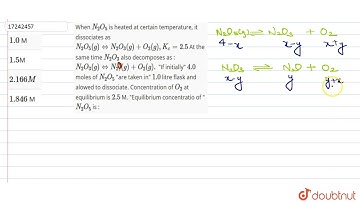 17242457
1.0 M
1.5M
2.166M
1.846 M
When N2O5 is heated at certain temperature, it
dissociates as
N2O5(g) ⇔ N2O3(g) + O2(g), Kc = 2.5 At the
same time N2O3 also decomposes as :
N2O3(g) ⇔ N2O(g) + O2(g). "If initially" 4.0
moles of N2O5 "are taken in" 1.0 litre flask and
alowed to dissociate. Concentration of O2 at
equilibrium is 2.5 M. "Equilibrium concentratio of "
N2O5 is :
N2O5(g) ⇌ N2O3 + O2
4-x x-y x+y
N2O3 ⇌ N2O + O2
x-y y y+x
doubtnut